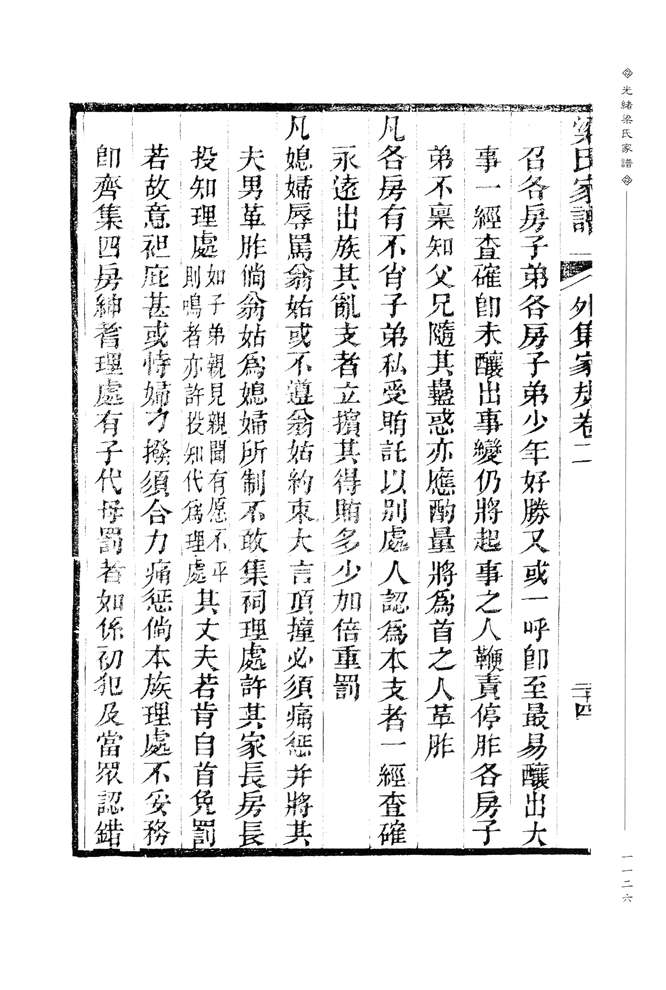 光緒梁氏家譜
一一二六
梁氏家譜 外集家規卷二 三十四
召各房子弟各房子弟少年好勝又或一呼卽至最易釀出大
事一經查確卽未釀出事變仍將起事之人鞭責停胙各房子
弟不稟知父兄隨其蠱惑亦應酌量將爲首之人革胙
凡各房有不肖子弟私受賄託以別處人認爲本支者一經查確
永遠出族其亂支者立擯其得賄多少加倍重罰
凡媳婦辱罵翁姑或不遵翁姑約束大言頂撞必須痛懲并將其
夫男革胙倘翁姑爲媳婦所制不敢集祠理處許其家長房長
投知理處如子弟親見親聞有愿不平則鳴者亦許投知代爲理處其丈夫若肯自首免罰
若故意袒庇甚或恃婦刁撥須合力痛懲倘本族理處不妥務
卽齊集四房紳耆理處有子代母罰者如係初犯及當眾認錯